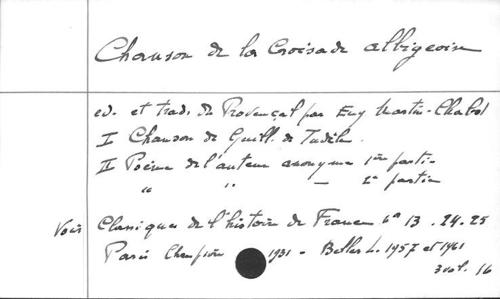 Chanson de la Croisade albigeoise
ed. et trad. du Provençal par Eug Martin-Chabot
I Chanson de Guill. de Tudèle
II Poème de l'auteur anonyme 1ère partie
" " — 2e partie
Voir Classiques de l'histoire de France 13 . 24 . 25
Paris Champion 1931 - Belles L. 1957 et 1961
3 vol. 16